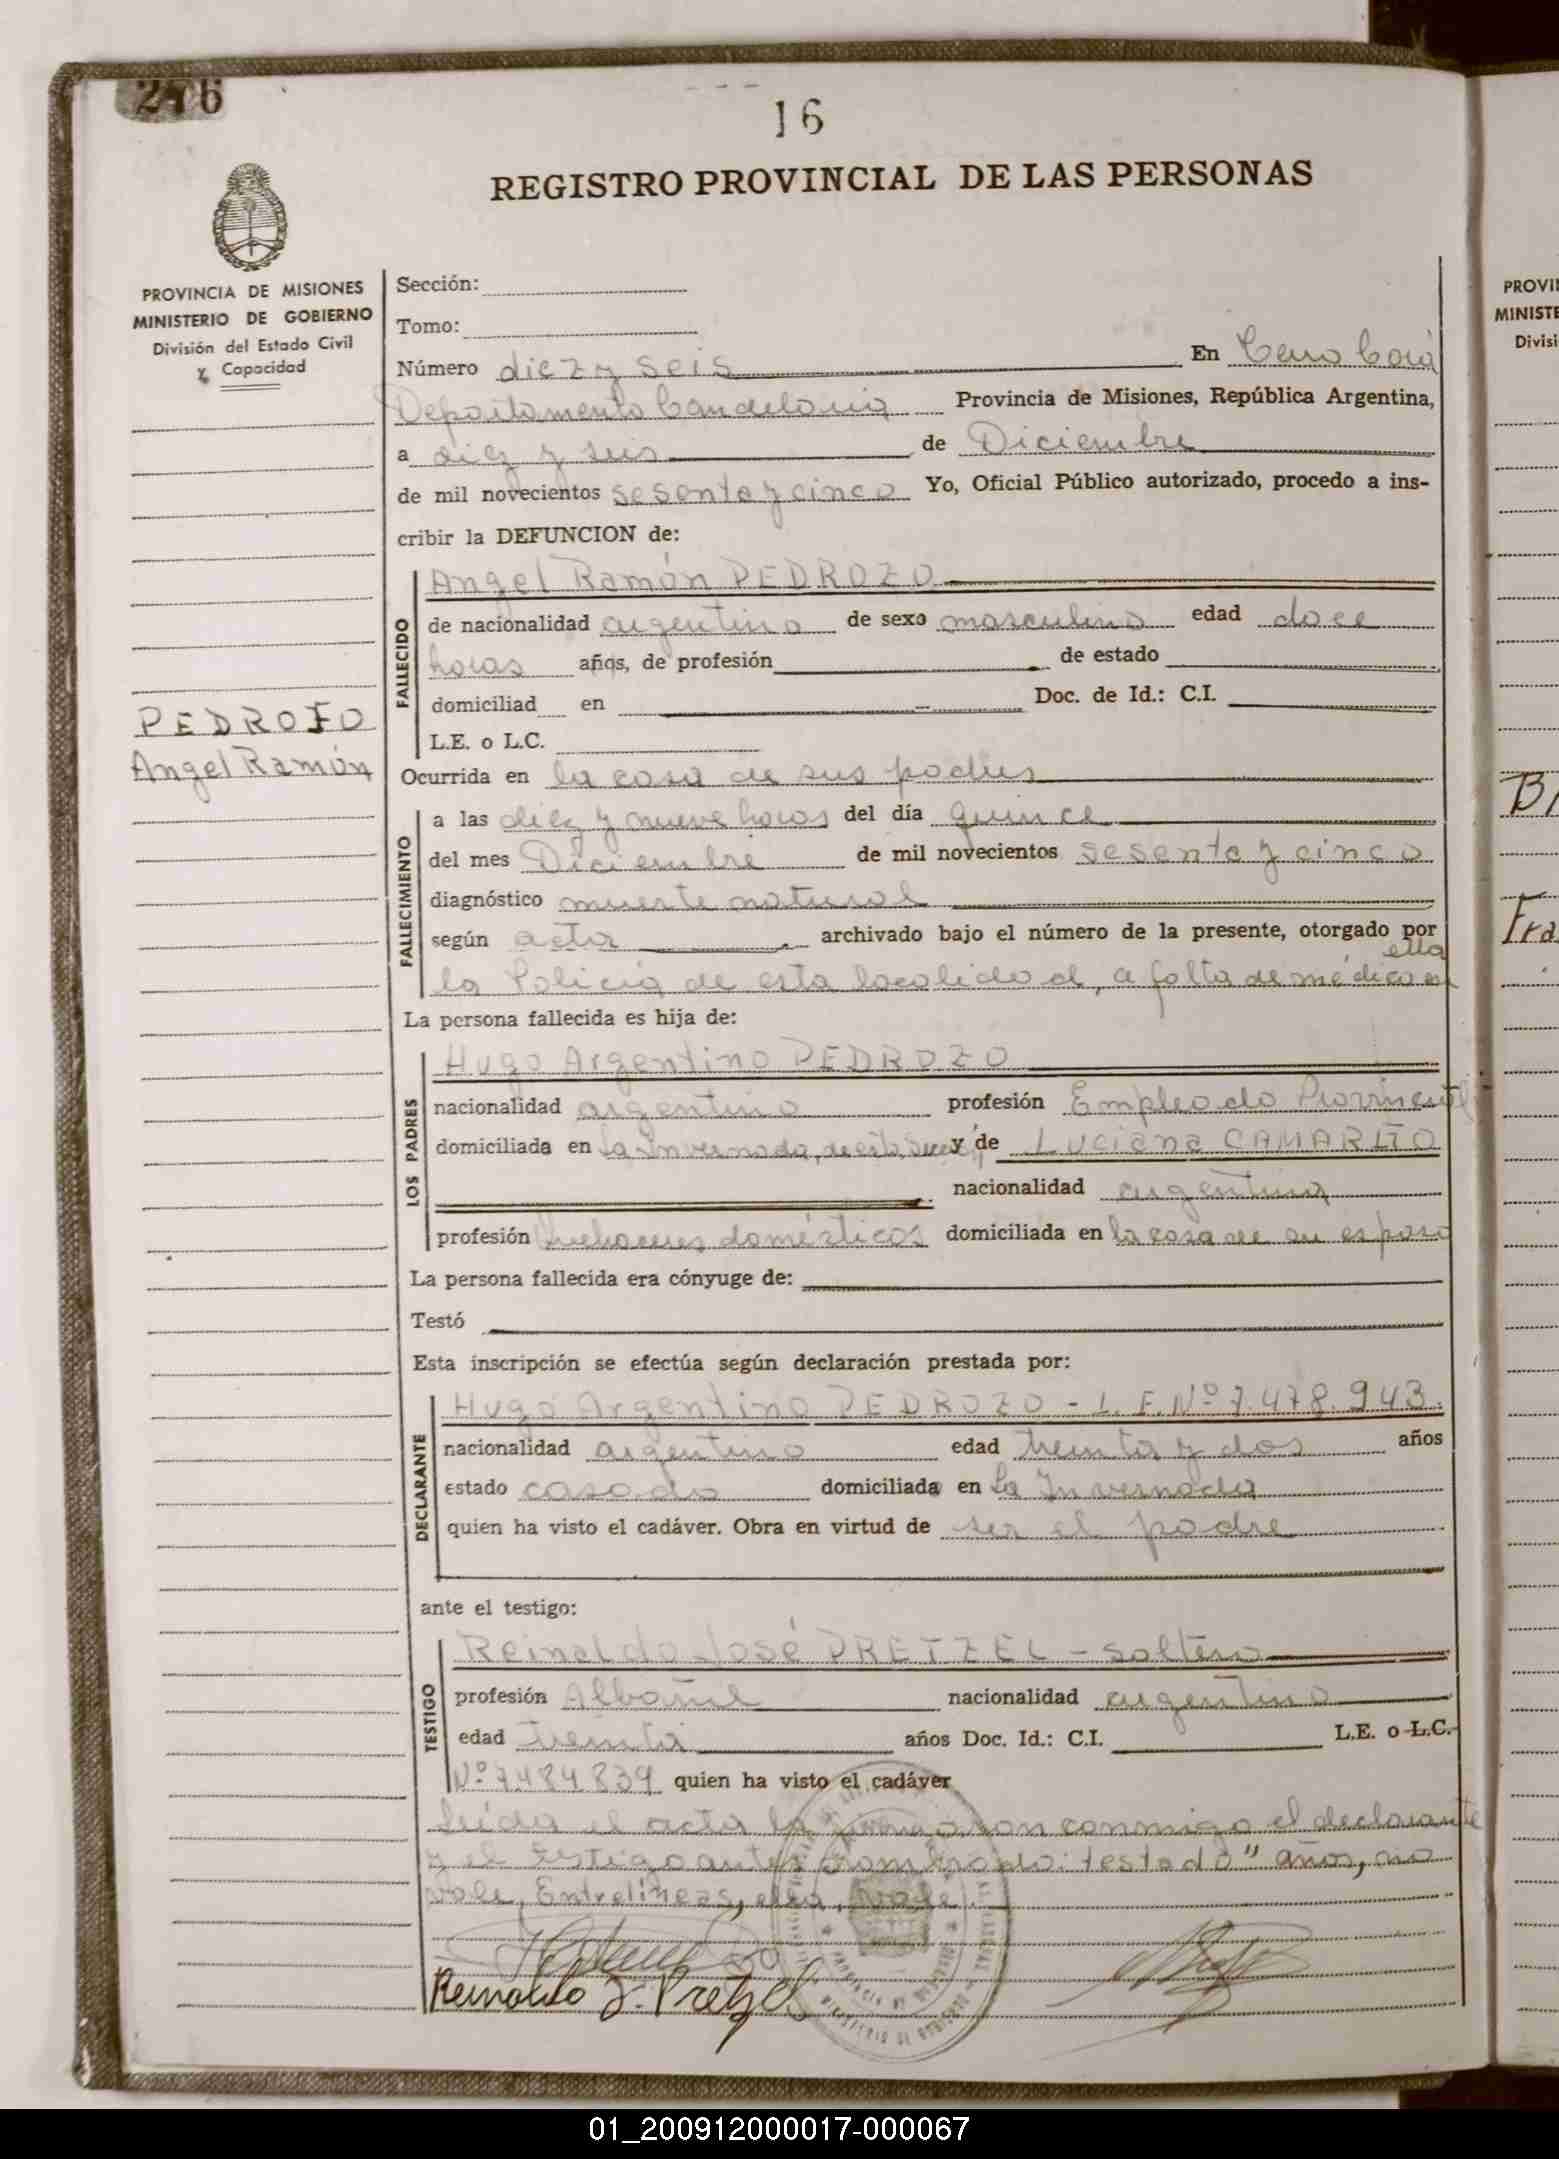 276
16
REGISTRO PROVINCIAL DE LAS PERSONAS
PROVINCIA DE MISIONES
MINISTERIO DE GOBIERNO
División del Estado Civil
y Capacidad
PEDROZO
Angel Ramón
Sección:
Tomo:
Número diez y seis En Cerro Corá
Departamento Candelaria Provincia de Misiones, República Argentina,
a diez y seis de Diciembre
de mil novecientos sesenta y cinco Yo, Oficial Público autorizado, procedo a ins-
cribir la DEFUNCION de:
FALLECIDO
Angel Ramón PEDROZO
de nacionalidad argentino de sexo masculino edad doce
horas años, de profesión de estado
domiciliad en Doc. de Id.: C.I.
L.E. o L.C.
Ocurrida en la casa de sus padres
FALLECIMIENTO
a las diez y nueve horas del día quince
del mes Diciembre de mil novecientos sesenta y cinco
diagnóstico muerte natural
según acta archivado bajo el número de la presente, otorgado por
ella
la Policia de esta localidad, a falta de médico en
La persona fallecida es hija de:
LOS PADRES
Hugo Argentino PEDROZO
nacionalidad argentino profesión Empleado Provincial
domiciliada en La Invernada, de esta y de Luciana CAMARITO
nacionalidad argentina
profesión quehaceres domésticos domiciliada en la casa de su esposo
La persona fallecida era cónyuge de:
Testó
Esta inscripción se efectúa según declaración prestada por:
DECLARANTE
Hugo Argentino PEDROZO - L.E. Nº 7.478.943.
nacionalidad argentino edad treinta y dos años
estado casado domiciliada en La Invernada
quien ha visto el cadáver. Obra en virtud de ser el padre
ante el testigo:
TESTIGO
Reinaldo José PRETZEL - soltero
profesión Albañil nacionalidad argentino
edad treinta años Doc. Id.: C.I. L.E. o L.C.
Nº 7.484.839 quien ha visto el cadáver
Leída el acta la firmaron conmigo el declarante
y el testigo antes nombrado: testado "años, no
vale, Entrelíneas, ella, vale.
Reinaldo J. Pretzel
PROVI
MINISTE
Divisi
01_200912000017-000067